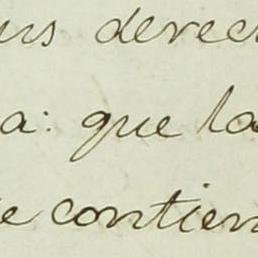 us derec
a: que la
e contien